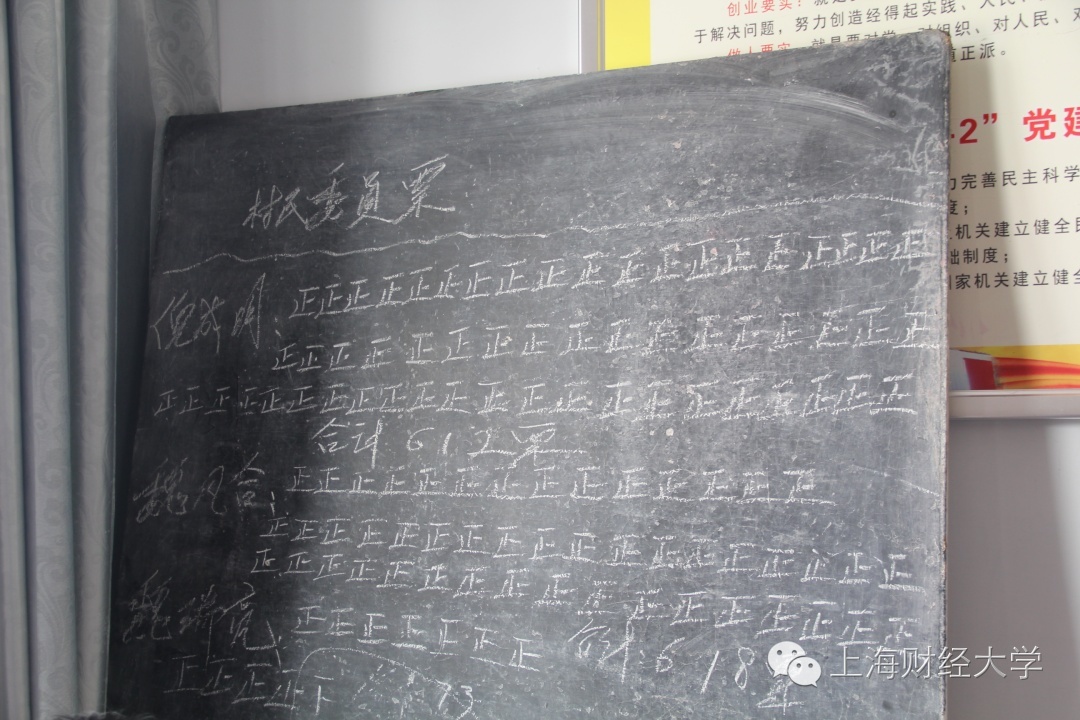 创业要实：就是要
于解决问题，努力创造经得起实践、人民、
做人要实：就是要对党、对组织、对人民、对
正派。
2”党建
完善民主科学
度；
机关建立健全民
础制度；
家机关建立健全
村民委員票
倪成明、正正正正正正正正正正正正正正正正正正正
正正正正正正正正正正正正正正正正正
正正正正正正正正正正正正正正正正正正正正正正
合计612票
魏凡合、正正正正正正正正正正正正正正正
正正正正正正正正正正正正正正正正正正
正正正正正正正正正正正正正正正正
魏瑞亮、正正正正正正正 合计618票
正正正正下 73
上海财经大学